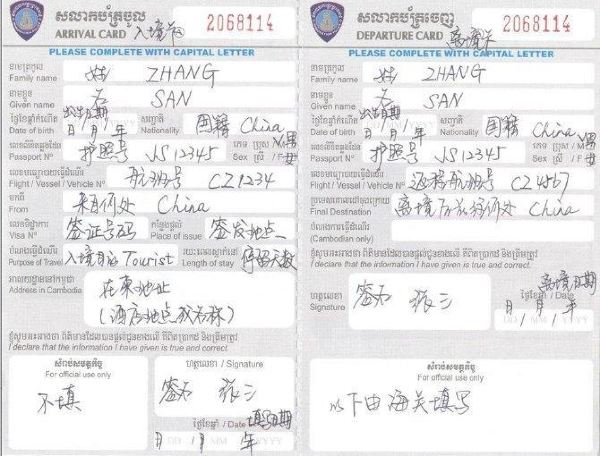 សលាកប័ត្រចូល
ARRIVAL CARD 入境卡
2068114
PLEASE COMPLETE WITH CAPITAL LETTER
នាមត្រកូល
Family name 姓 ZHANG
នាមខ្លួន
Given name 名 SAN
ថ្ងៃខែឆ្នាំកំណើត 出生日期 សញ្ជាតិ
Date of birth 日/月/年 Nationality 国籍 China
លេខលិខិតឆ្លងដែន ភេទ ប្រុស / M 男
Passport Nº 护照号 JS12345 Sex ស្រី / F 女
Flight / Vessel / Vehicle Nº 航班号 CZ1234
មកពី
From 来自何处 China
លេខទិដ្ឋាការ កន្លែងផ្តល់
Visa Nº 签证号码 Place of issue 签发地点
បំណងធ្វើដំណើរ
Purpose of Travel 入境目的 Tourist Length of stay 停留天数
អាសយដ្ឋាននៅកម្ពុជា
Address in Cambodia 在柬地址
(酒店地点或名称)
I declare that the information I have given is true and correct.
សំរាប់សមត្ថកិច្ច
For official use only
不填
ហត្ថលេខា / Signature
签名 张三
ថ្ងៃខែឆ្នាំ / Date 填写日期
日/月/年
DD MM YYYY
សលាកប័ត្រចេញ
DEPARTURE CARD 离境卡
2068114
PLEASE COMPLETE WITH CAPITAL LETTER
នាមត្រកូល
Family name 姓 ZHANG
នាមខ្លួន
Given name 名 SAN
ថ្ងៃខែឆ្នាំកំណើត 出生日期 សញ្ជាតិ
Date of birth 日/月/年 Nationality 国籍 China
លេខលិខិតឆ្លងដែន ភេទ ប្រុស / M 男
Passport Nº 护照号 JS12345 Sex ស្រី / F 女
Flight / Vessel / Vehicle Nº 返程航班号 CZ4567
Final Destination 离境后前往何处 China
(Cambodian only)
I declare that the information I have given is true and correct.
ហត្ថលេខា
Signature 签名 张三
ថ្ងៃខែឆ្នាំ / Date 离境日期
日/月/年
DD / MM / YYYY
សំរាប់សមត្ថកិច្ច
For official use only
以下由海关填写